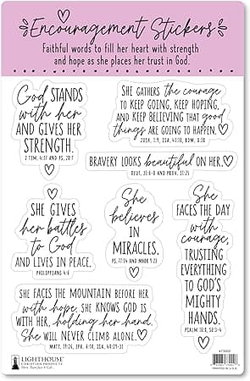 Encouragement Stickers
Faithful words to fill her heart with strength
and hope as she places her trust in God.
God STANDS
with her
AND GIVES HER
STRENGTH.
2 TIM. 4:17 AND PS. 28:7
SHE GATHERS the courage
TO KEEP GOING, KEEP HOPING,
AND KEEP BELIEVING THAT good
things ARE GOING TO HAPPEN.
BRAVERY LOOKS beautiful ON HER.
SHE GIVES
her battles
to God
AND LIVES IN PEACE.
PHILIPPIANS 4:6
She
believes
IN
MIRACLES.
She
FACES THE DAY
with
courage,
TRUSTING
EVERYTHING
TO GOD'S
MIGHTY
HANDS.
SHE FACES THE MOUNTAIN BEFORE HER
with hope. SHE KNOWS GOD IS
WITH HER, holding her hand.
She WILL NEVER CLIMB ALONE.
LIGHTHOUSE
CHRISTIAN PRODUCTS